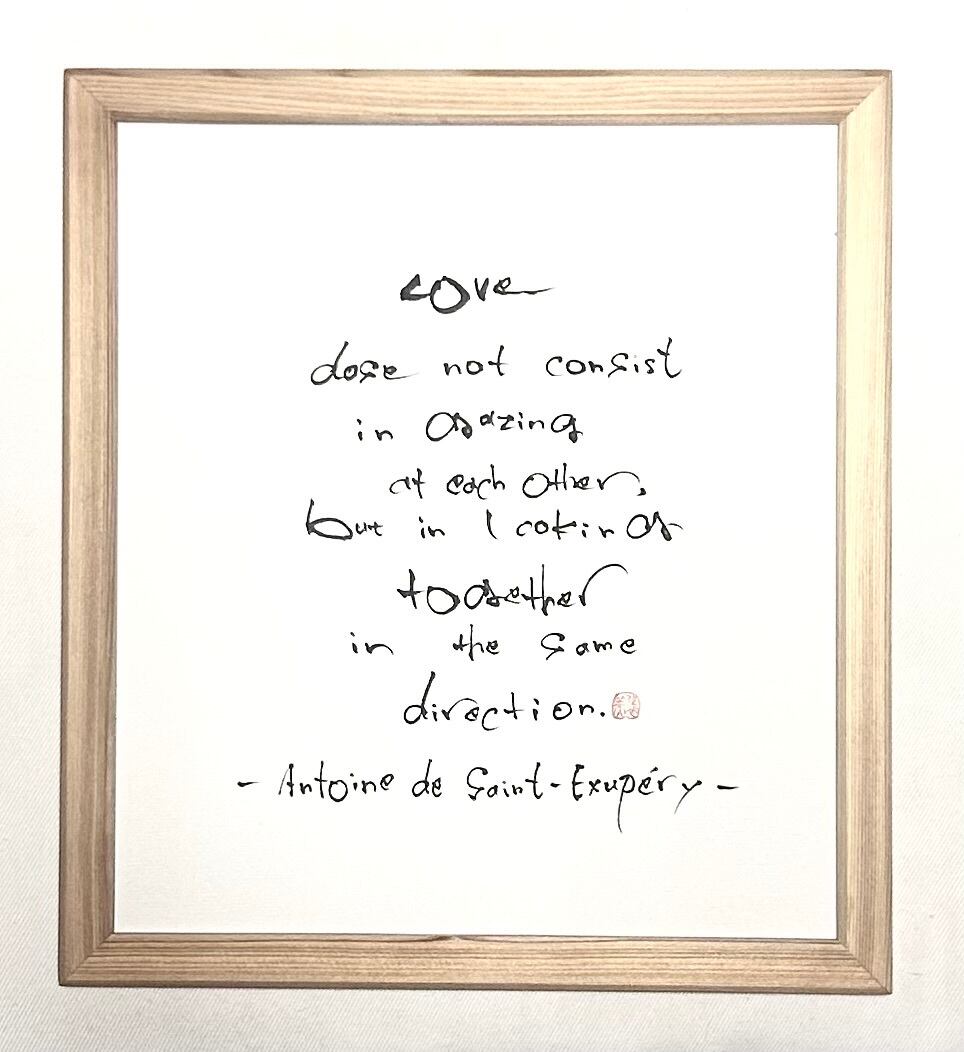 Love
dose not consist
in gazing
at each other,
but in looking
together
in the same
direction.
- Antoine de Saint-Exupéry -